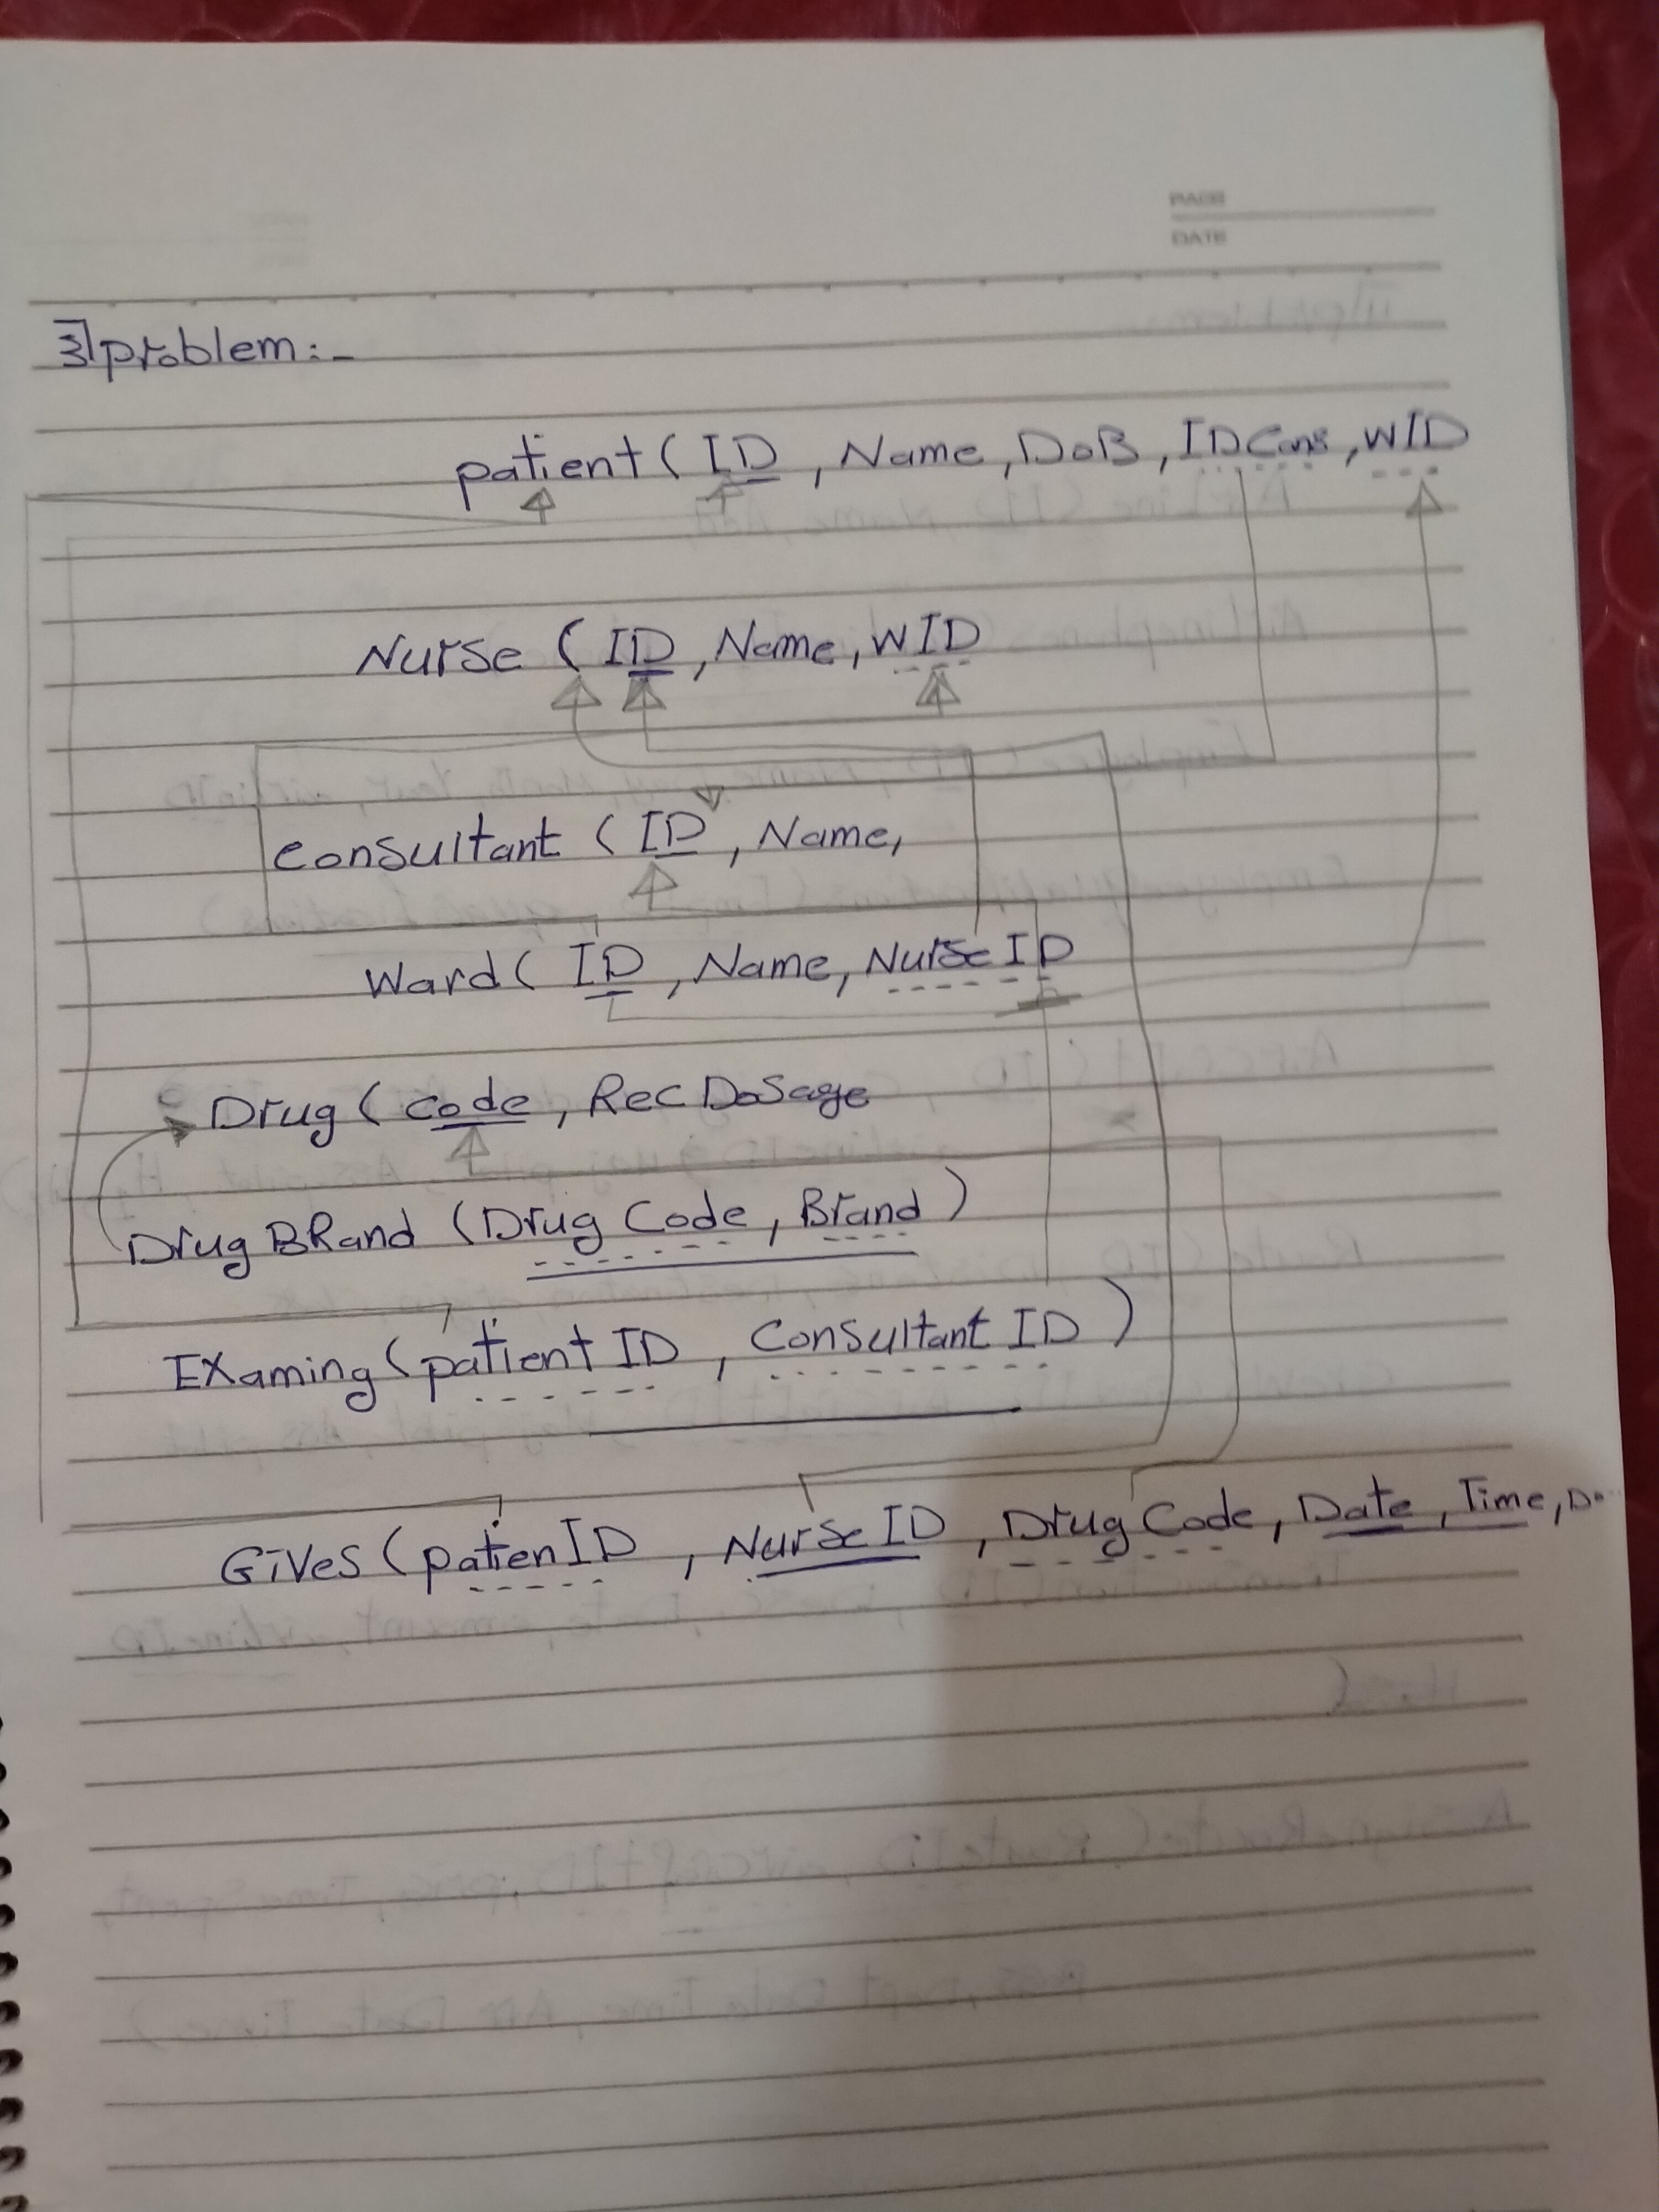 PAGE
DATE
3] problem:-
patient ( ID , Name , DoB , IDCons , WID
Nurse ( ID , Name , WID
consultant ( ID , Name ,
Ward ( ID , Name , Nurse ID
Drug ( code , Rec DoSage
Drug BRand ( Drug Code , Brand )
EXaming ( patient ID , Consultant ID )
GiVes ( patien ID , Nurse ID , Drug Code , Date , Time , Do